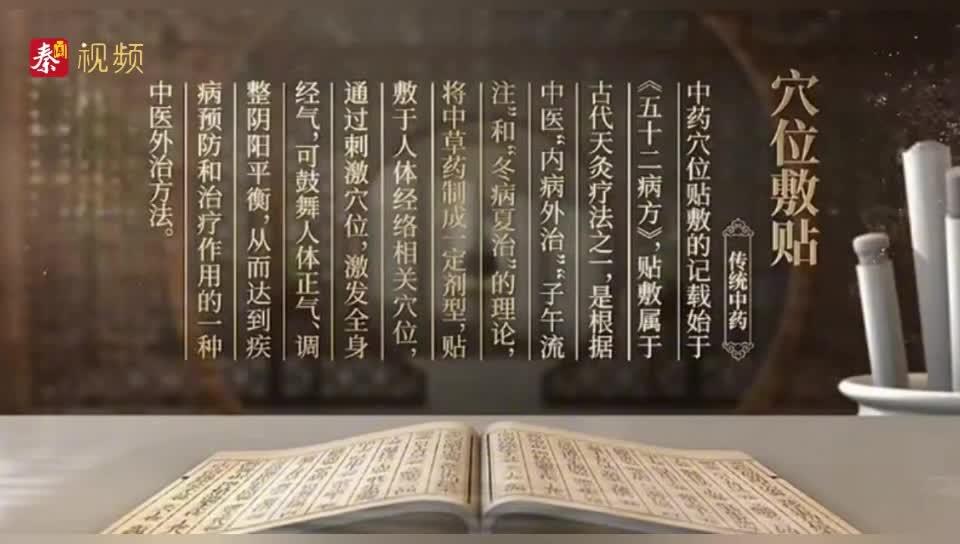 秦商视频
穴位敷贴
传统中药
中药穴位贴敷的记载始于
《五十二病方》，贴敷属于
古代天灸疗法之一，是根据
中医“内病外治”“子午流
注”和“冬病夏治”的理论，
将中草药制成一定剂型，贴
敷于人体经络相关穴位，
通过刺激穴位，激发全身
经气，可鼓舞人体正气、调
整阴阳平衡，从而达到疾
病预防和治疗作用的一种
中医外治方法。